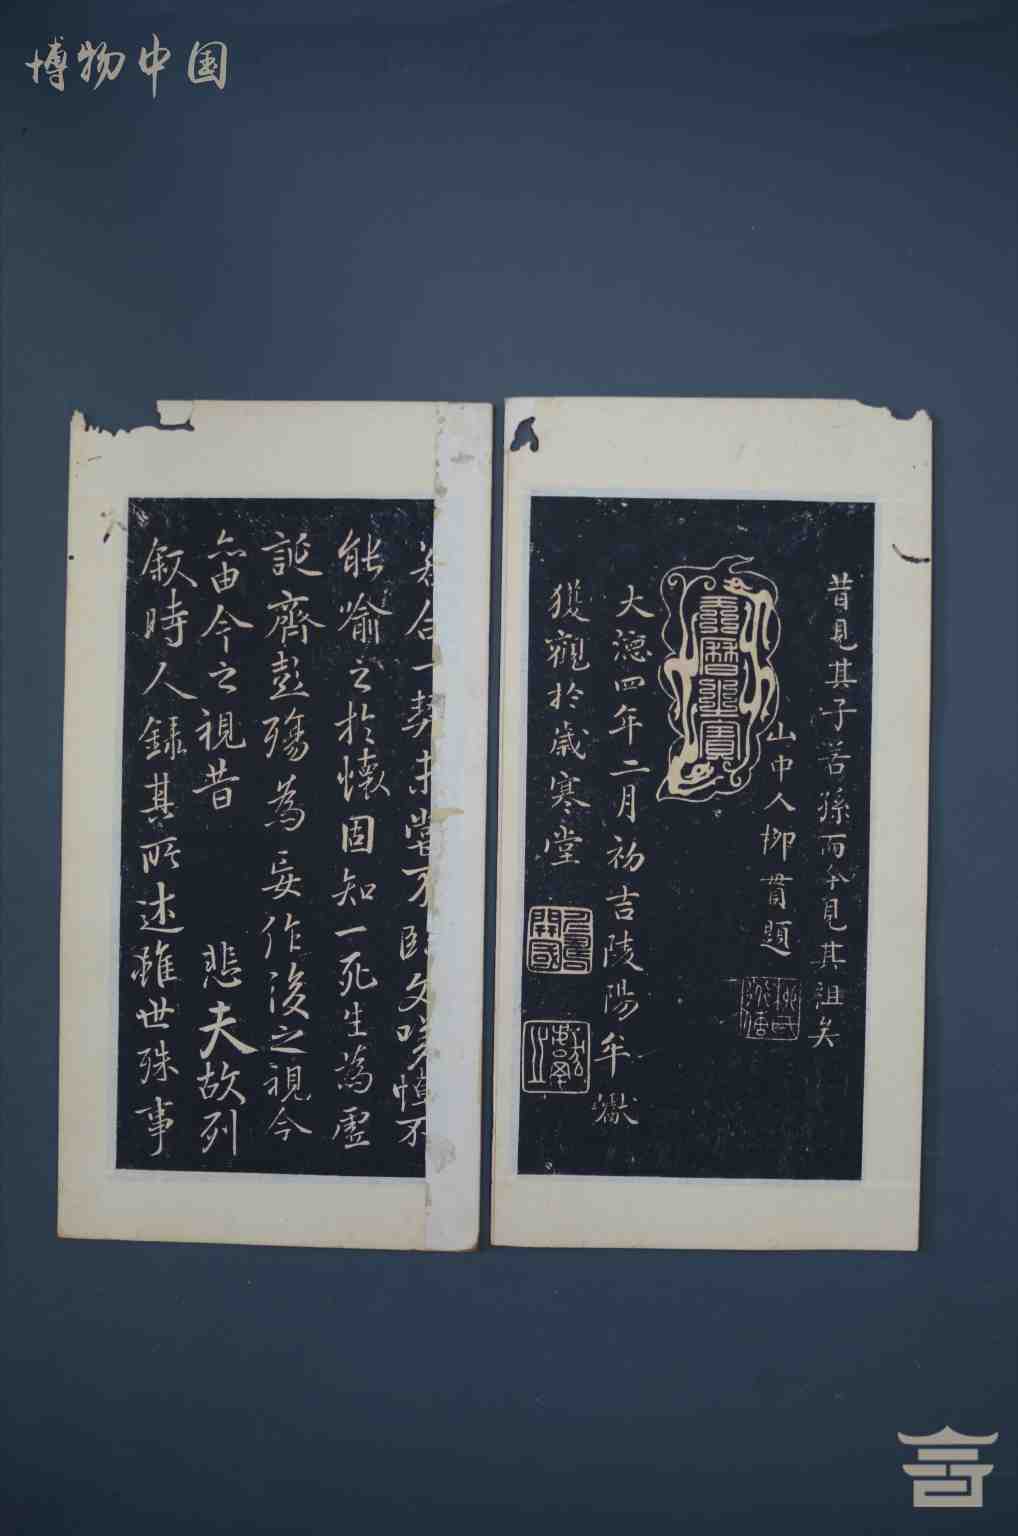 博物中国
昔見其子若孫而今見其祖矣
山中人柳貫題
大德四年二月初吉陵陽牟巘
獲觀於歲寒堂
若合一契未嘗不臨文嗟悼不
能喻之於懷固知一死生為虛
誕齊彭殤為妄作後之視今
亦由今之視昔 悲夫故列
叙時人錄其所述雖世殊事